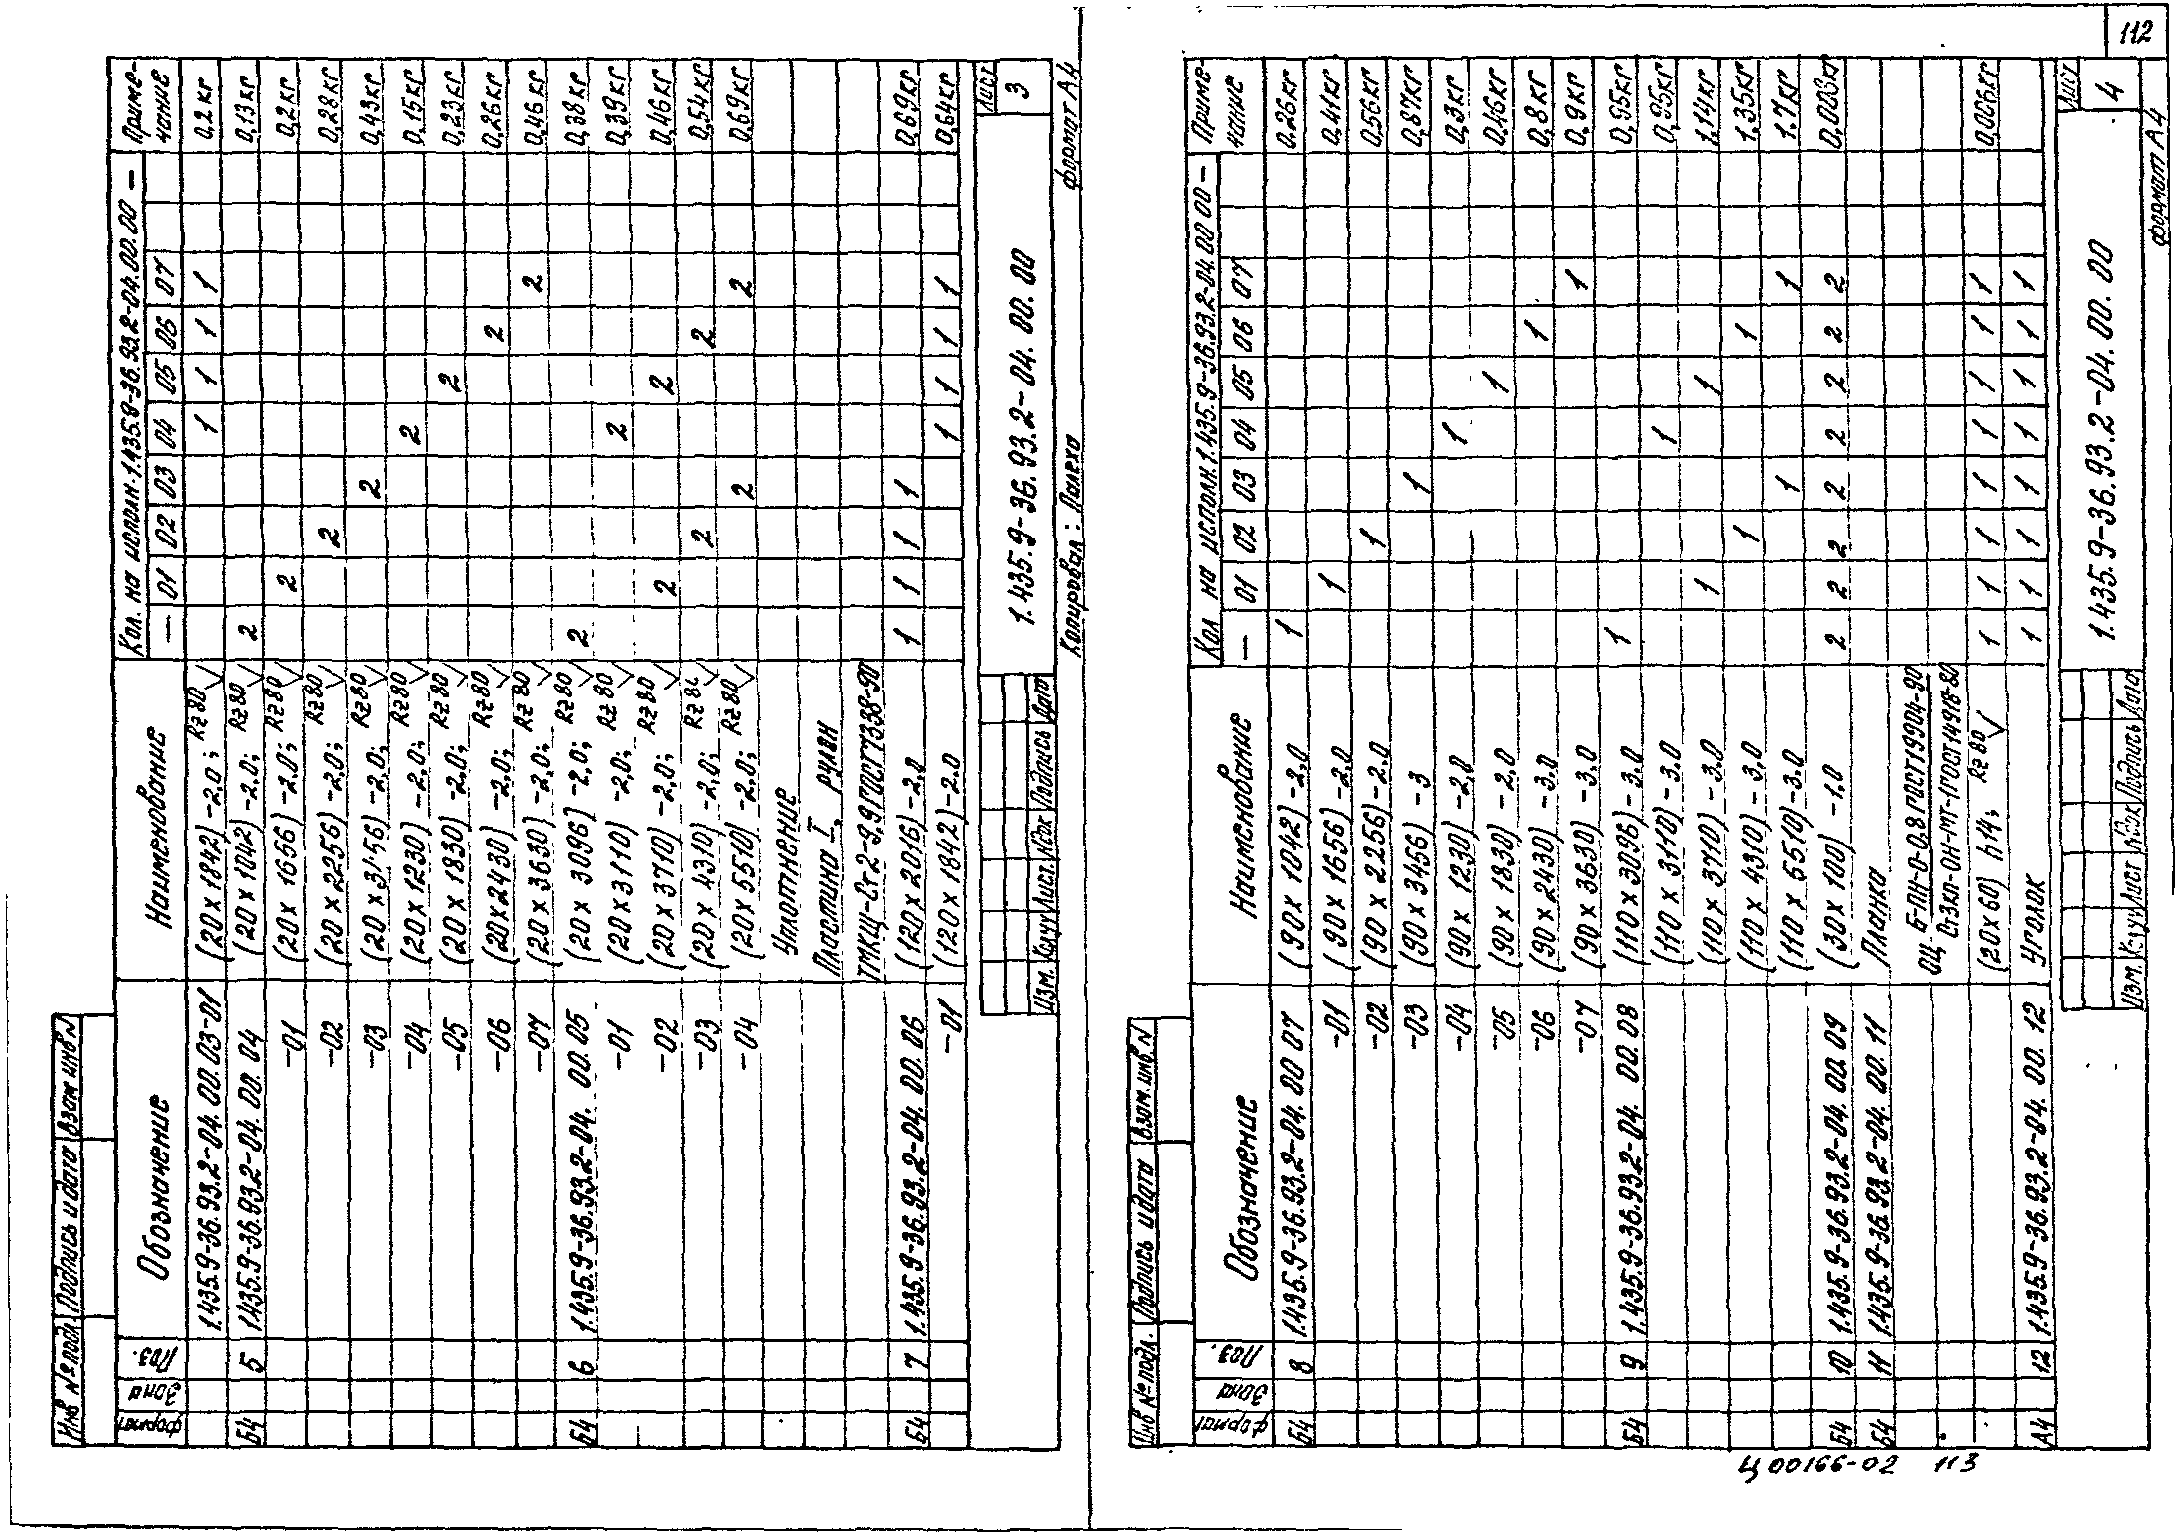 112
Формат Зона Поз. Обозначение Наименование Кол. на исполн. 1.435.9-36.93.2-04.00.00 — Приме-чание
— 01 02 03 04 05 06 07
1.435.9-36.93.2-04.00.03-01 (20 x 1842) -2,0; Rz 80 1 1 1 1 0,2 кг
Б4 5 1.435.9-36.93.2-04.00.04 (20 x 1042) -2,0; Rz 80 2 0,13 кг
-01 (20 x 1656) -2,0; Rz 80 2 0,2 кг
-02 (20 x 2256) -2,0; Rz 80 2 0,28 кг
-03 (20 x 3456) -2,0; Rz 80 2 0,43 кг
-04 (20 x 1230) -2,0; Rz 80 2 0,15 кг
-05 (20 x 1830) -2,0; Rz 80 2 0,23 кг
-06 (20 x 2430) -2,0; Rz 80 2 0,26 кг
-07 (20 x 3630) -2,0; Rz 80 2 0,46 кг
Б4 6 1.435.9-36.93.2-04.00.05 (20 x 3096) -2,0; Rz 80 2 0,38 кг
-01 (20 x 3110) -2,0; Rz 80 2 0,39 кг
-02 (20 x 3710) -2,0; Rz 80 2 2 0,46 кг
-03 (20 x 4310) -2,0; Rz 80 2 2 0,54 кг
-04 (20 x 5510) -2,0; Rz 80 2 2 0,69 кг
Уплотнение
Пластина I, рулон
ТМКЩ-Ст2-9,9 ГОСТ 7338-90
Б4 7 1.435.9-36.93.2-04.00.06 (120 x 2016) -2,0 1 1 1 1 0,69 кг
-01 (120 x 1842) -2.0 1 1 1 1 0,64 кг
Изм. Кол.уч Лист. №док Подпись Дата
1.435.9-36.93.2-04.00.00
Лист
3
Инв № подл. Подпись и дата Взам инв N
Копировал: Палеха формат А4
Формат Зона Поз. Обозначение Наименование Кол на исполн. 1.435.9-36.93.2-04.00 00 — Приме-чание
— 01 02 03 04 05 06 07
Б4 8 1.435.9-36.93.2-04.00 07 (90 x 1042) -2,0 1 0.26 кг
-01 (90 x 1656) -2.0 1 0,41 кг
-02 (90 x 2256) -2.0 1 0,56 кг
-03 (90 x 3456) -3 1 0,87 кг
-04 (90 x 1230) -2,0 1 0,3 кг
-05 (90 x 1830) -2,0 1 0,46 кг
-06 (90 x 2430) -3.0 1 0,8 кг
-07 (90 x 3630) -3.0 1 0,9 кг
Б4 9 1.435.9-36.93.2-04.00.08 (110 x 3096) -3.0 1 0,95 кг
(110 x 3110) -3.0 1 0,95 кг
(110 x 3710) -3.0 1 1 1.14 кг
(110 x 4310) -3,0 1 1 1.35 кг
(110 x 5510) -3.0 1 1 1.7 кг
Б4 10 1.435.9-36.93.2-04.00 09 (30 x 100) -1.0 2 2 2 2 2 2 2 2 0.003 кг
Б4 11 1.435.9-36.93.2-04.00.11 Планка
ОЦ. Б-ПН-О-0,8 ГОСТ 19904-90
Ст3кп-ОН-МТ-1 ГОСТ 14918-80
(20 x 60) h14; Rz 80 1 1 1 1 1 1 1 1 0,006 кг
А4 12 1.435.9-36.93.2-04.00.12 Уголок 1 1 1 1 1 1 1 1
Изм. К.уч Лист №док Подпись Дата
1.435.9-36.93.2-04.00.00
Лист
4
Инв № подл. Подпись и дата Взам. инв. N
формат А4
Ц00166-02 113